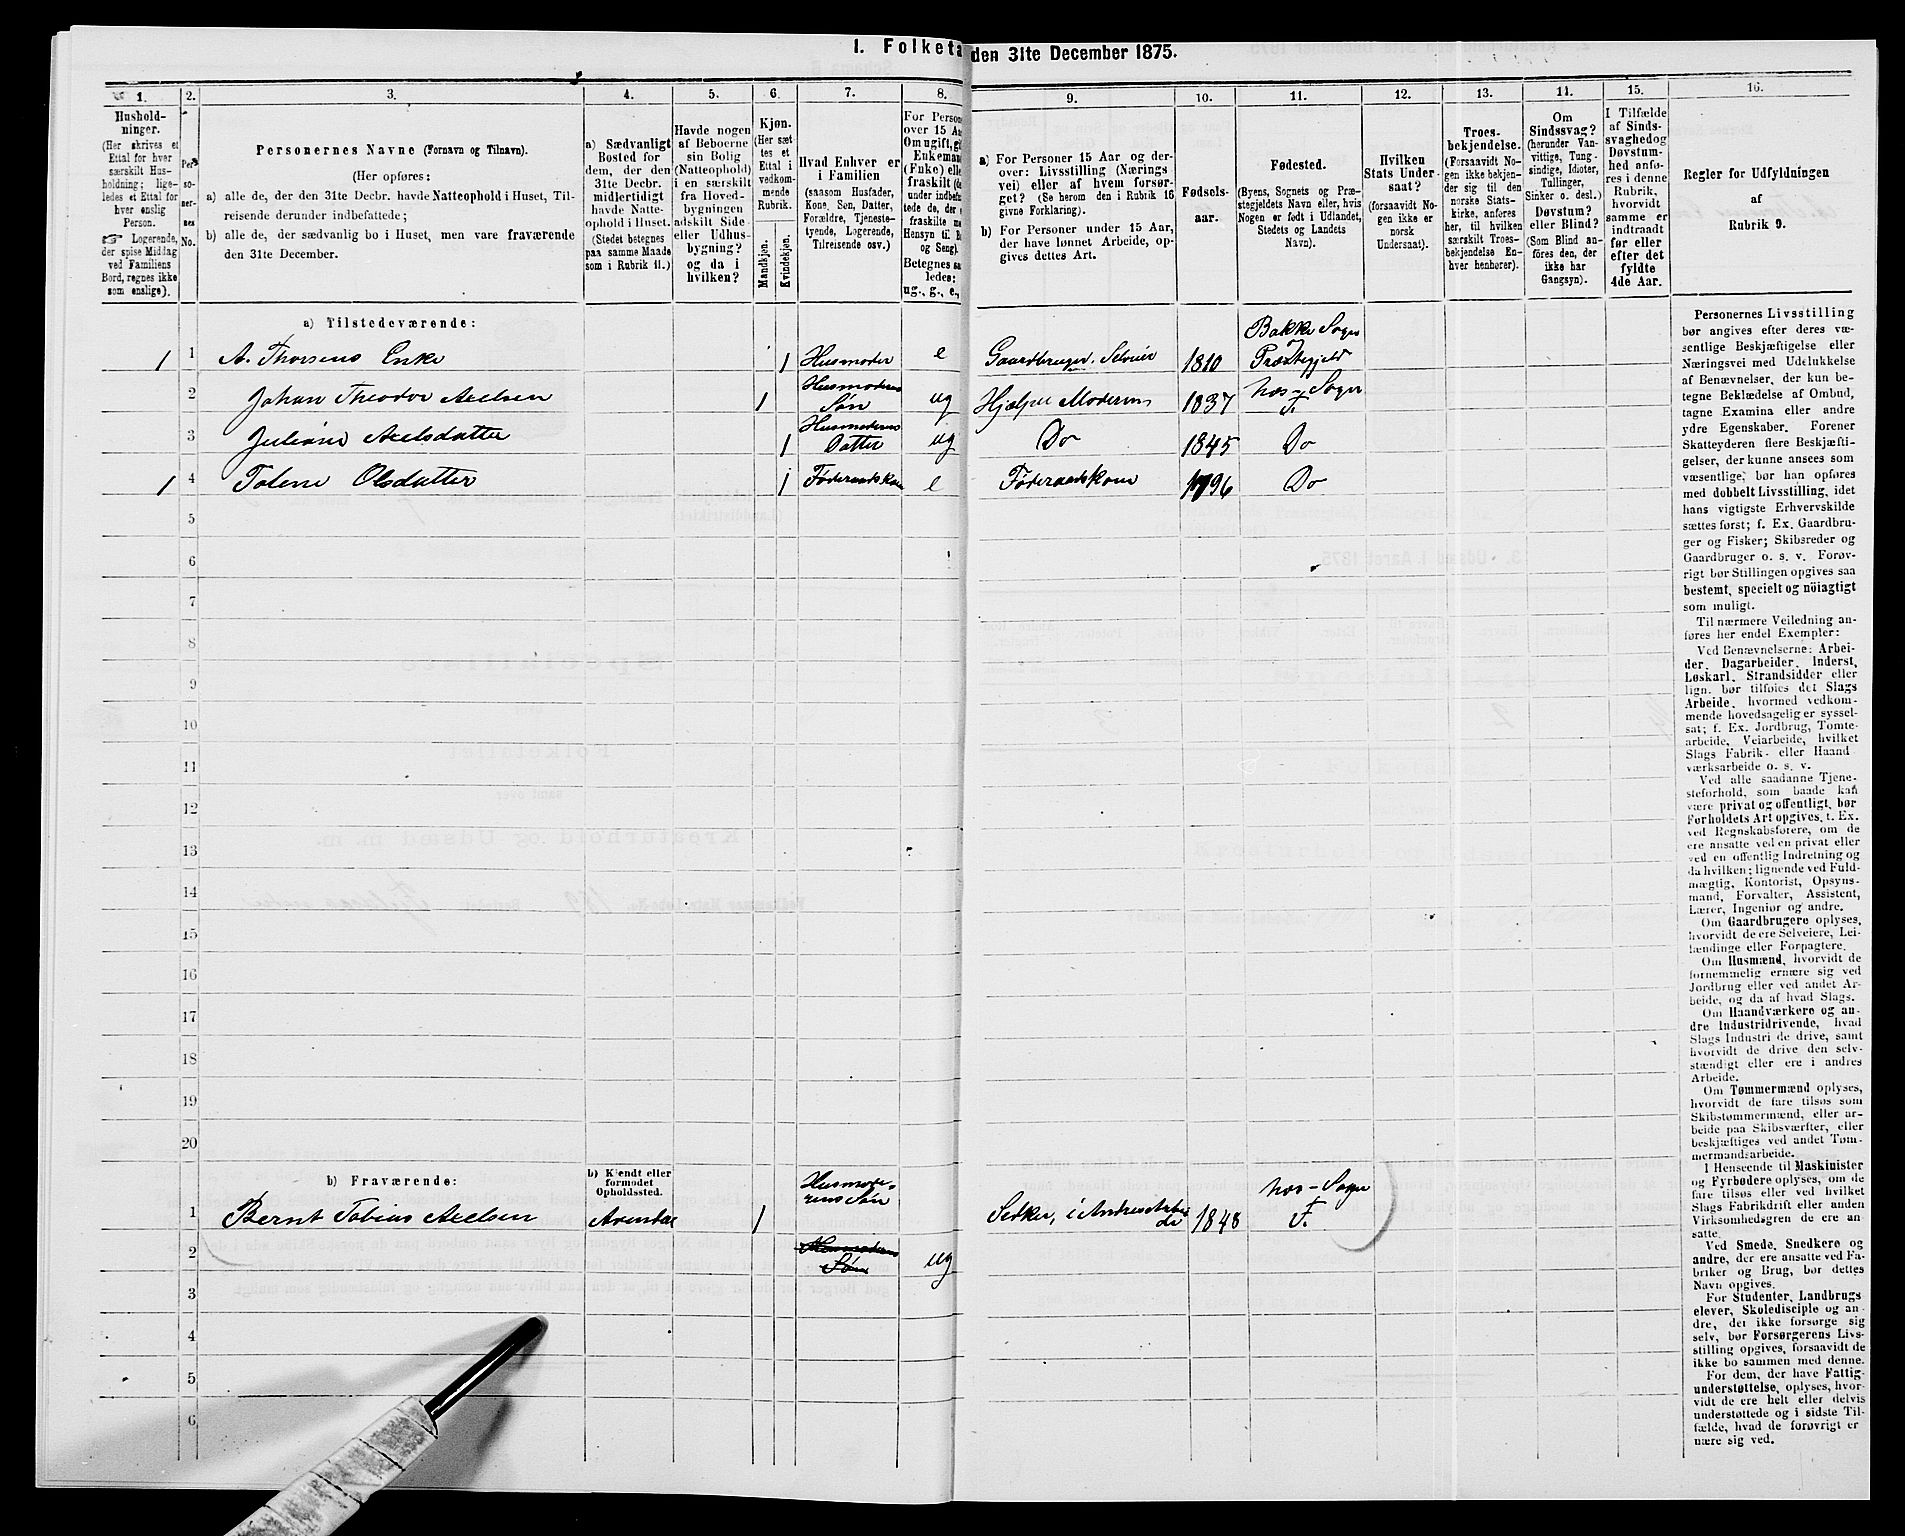 I. Folketæ
den 31te December 1875.
1.
2.
3.
4.
5.
6.
7.
8.
9.
10.
11.
12.
13.
11.
15.
16.
Hushold-
ninger.
(Her skrives et
Ettal for hver
særskilt Hus-
holdning; lige-
ledes et Ettal for
hver enslig
Person.
Logerende,
der spise Middag
ved Familiens
Bord, regnes ikke
som enslige).
Per-
so-
ner-
nes
No.
Personernes Navne (Fornavn og Tilnavn).
(Her opføres:
a) alle de, der den 31te Decbr. havde Natteophold i Huset, Til-
reisende derunder indbefattede;
b) alle de, der sædvanlig bo i Huset, men vare fraværende
den 31te December.
a) Sædvanligt
Bosted for
dem, der den
31te Decbr.
midlertidigt
havde Natte-
ophold i Huset.
(Stedet betegnes
paa samme Maade
som i Rubrik 11.)
Havde nogen
af Beboerne
sin Bolig
(Natteophold)
i en særskilt
fra Hoved-
bygningen
adskilt Side-
eller Udhus-
bygning?
og da i
hvilken?
Kjøn.
(Her sæt-
tes et
Ettal i
vedkom-
mende
Rubrik.
Mandkjøn.
Kvindekjøn.
Hvad Enhver er
i Familien
(saasom Husfader,
Kone, Søn, Datter,
Forældre, Tjeneste-
tyende, Logerende,
Tilreisende osv.)
For Persone
over 15 Aa
Om ugift, gi
Enkeman
(Enke) elle
fraskilt (de
under indbefa
tede de, der e
fraskilte me
Hensyn til B
og Seng).
Betegnes sa
ledes:
ug., g., e.,
a) For Personer 15 Aar og der-
over: Livsstilling (Nærings
vei) eller af hvem forsør-
get? (Se herom den i Rubrik 16
givne Forklaring).
b) For Personer under 15 Aar,
der have lønnet Arbeide, op-
gives dettes Art.
Fødsels-
aar.
Fødested.
(Byens, Sognets og Præ-
stegjeldets Navn eller, hvis
Nogen er født i Udlandet,
Stedets og Landets
Navn).
Hvilken
Stats Under-
saat?
(forsaavidt No-
gen ikke er
norsk
Undersaat).
Troes-
bekjendelse.
(Forsaavidt No-
gen ikke bekjen-
der sig til den
norske Stats-
kirke, anføres
her, til hvilken
særskilt Troes-
bekjendelse En-
hver henhører).
Om
Sindssvag?
(herunder Van-
vittige, Tung-
sindige, Idioter,
Tullinger,
Sinker o. desl.)
Døvstum?
eller Blind?
(Som Blind an-
føres den, der
ikke har
Gangsyn).
I Tilfælde
af Sinds-
svaghed og
Døvstum-
hed anfø-
res i denne
Rubrik,
hvorvidt
samme er
indtraadt
før eller
efter det
fyldte
4de Aar.
Regler for Udfyldningen
af
Rubrik 9.
a) Tilstedeværende:
Bakke Sogn
1 1 A. Thorsens Enke 1 Husmoder e Gaardbruger, Selveier 1810 Præstegjeld
Husmoderens
2 Johan Theodor Axelsen 1 Søn ug Hjælper Moderen 1837 Sogn
Husmoderens
3 Juliane Axelsdatter 1 Datter ug Do 1845 Do
1 4 Tolene Olsdatter 1 Føderaadskone e Føderaadskone 1796 Do
5
6
7
8
9
10
11
12
13
14
15
16
17
18
19
20
b) Fraværende:
b) Kjendt eller
formodet
Opholdssted.
Husmode-
rens Søn
Sogn
1 Bernt Tobias Axelsen Arendal 1 1848
2 Husmoderens Søn ug
3
4
5
6
Personernes Livsstilling
bør angives efter deres væ-
sentlige Beskjæftigelse eller
Næringsvei med Udelukkelse
af Benævnelser, der kun be-
tegne Beklædelse af Ombud,
tagne Examina eller andre
ydre Egenskaber. Forener
Skatteyderen flere Beskjæfti-
gelser, der kunne ansees som
væsentlige, bør han opføres
med dobbelt Livsstilling, idet
hans vigtigste Erhvervskilde
sættes først; f. Ex. Gaardbru-
ger og Fisker; Skibsreder og
Gaardbruger o. s. v. Forøv-
rigt bør Stillingen opgives saa
bestemt, specielt og nöiagtigt
som muligt.
Til nærmere Veiledning an-
føres her endel Exempler:
Ved Benævnelserne: Arbei-
der, Dagarbeider, Inderst,
Løskarl, Strandsidder eller
lign. bør tilføies det Slags
Arbeide, hvormed vedkom-
mende hovedsagelig er syssel-
sat; f. Ex. Jordbrug, Tomte-
arbeide, Veiarbeide, hvilket
Slags Fabrik- eller Haand-
værksarbeide o. s. v.
Ved alle saadanne Tjene-
steforhold, som baade kan
være privat og offentligt, bør
Forholdets Art opgives, f. Ex.
ved Regnskabsførere, om de
ere ansatte ved en privat eller
ved en offentlig Indretning og
da hvilken; lignende ved Fuld-
mægtig, Kontorist, Opsyns-
mand, Forvalter, Assistent,
Lærer, Ingeniør og andre.
Om Gaardbrugere oplyses,
hvorvidt de ere Selveiere, Lei-
lændinge eller Forpagtere.
Om Husmænd, hvorvidt de
fornemmelig ernære sig ved
Jordbrug eller ved andet Ar-
beide, og da af hvad Slags.
Om Haandværkere og an-
dre Industridrivende, hvad
Slags Industri de drive, samt
hvorvidt de drive den selv-
stændigt eller ere i andres
Arbeide.
Om Tømmermænd oplyses,
hvorvidt de fare tilsøs som
Skibstømmermænd, eller ar-
beide paa Skibsværfter, eller
beskjæftiges ved andet Tøm-
mermandsarbeide.
I Henseende til Maskinister
og Fyrbødere oplyses, om de
fare tilsøs eller ved hvilket
Slags Fabrikdrift eller anden
Virksomhedsgren de ere an-
satte.
Ved Smede, Snedkere og
andre, der ere ansatte ved Fa-
briker og Brug, bør dettes
Navn opgives.
For Studenter, Landbrugs
elever, Skoledisciple og an-
dre, der ikke forsørge sig
selv, bør Forsørgerens Livs-
stilling opgives, forsaavidt de
ikke bo sammen med denne.
For dem, der have Fattig-
understøttelse, oplyses, hvor-
vidt de ere helt eller delvis
understøttede og i sidste Til-
fælde, hvad de forøvrigt er-
nære sig ved.